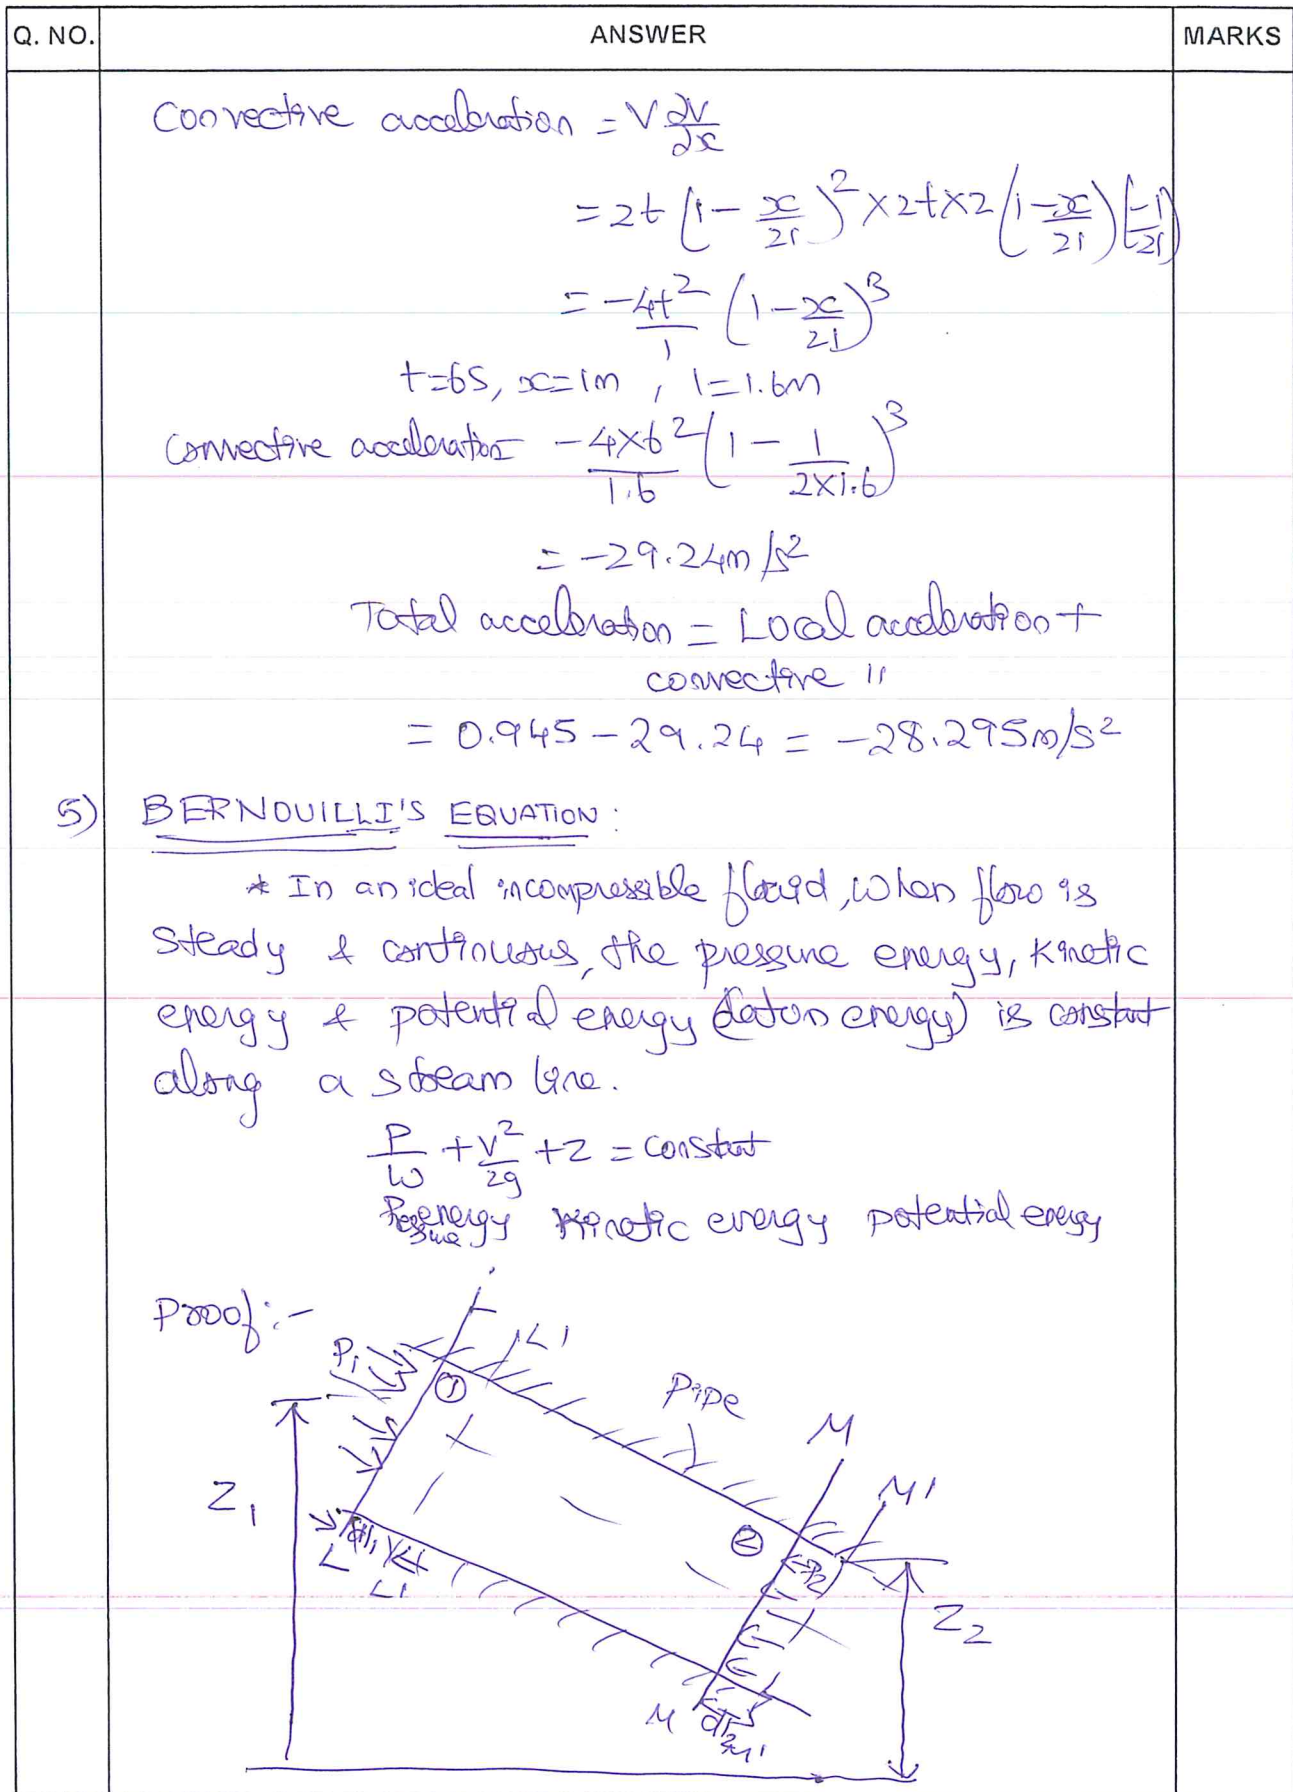 Q. NO. ANSWER MARKS
Convective acceleration = V ∂V/∂x
= 2t (1 - x/2l)² × 2t × 2 (1 - x/2l) (-1/2l)
= -4t²/l (1 - x/2l)³
t=6S, x=1m, l=1.6m
Convective acceleration = -4×6²/1.6 (1 - 1/2×1.6)³
= -29.24m/s²
Total acceleration = Local acceleration +
convective "
= 0.945 - 29.24 = -28.295m/s²
5) BERNOUILLI'S EQUATION:
* In an ideal incompressible fluid, when flow is
steady & continuous, the pressure energy, kinetic
energy & potential energy (datum energy) is constant
along a stream line.
P/w + V²/2g + Z = constant
Pressure energy Kinetic energy potential energy
Proof:-
L L1
P1 ① Pipe
M
M1
Z1
② P2
L dl1
L1
Z2
M dl2 M1